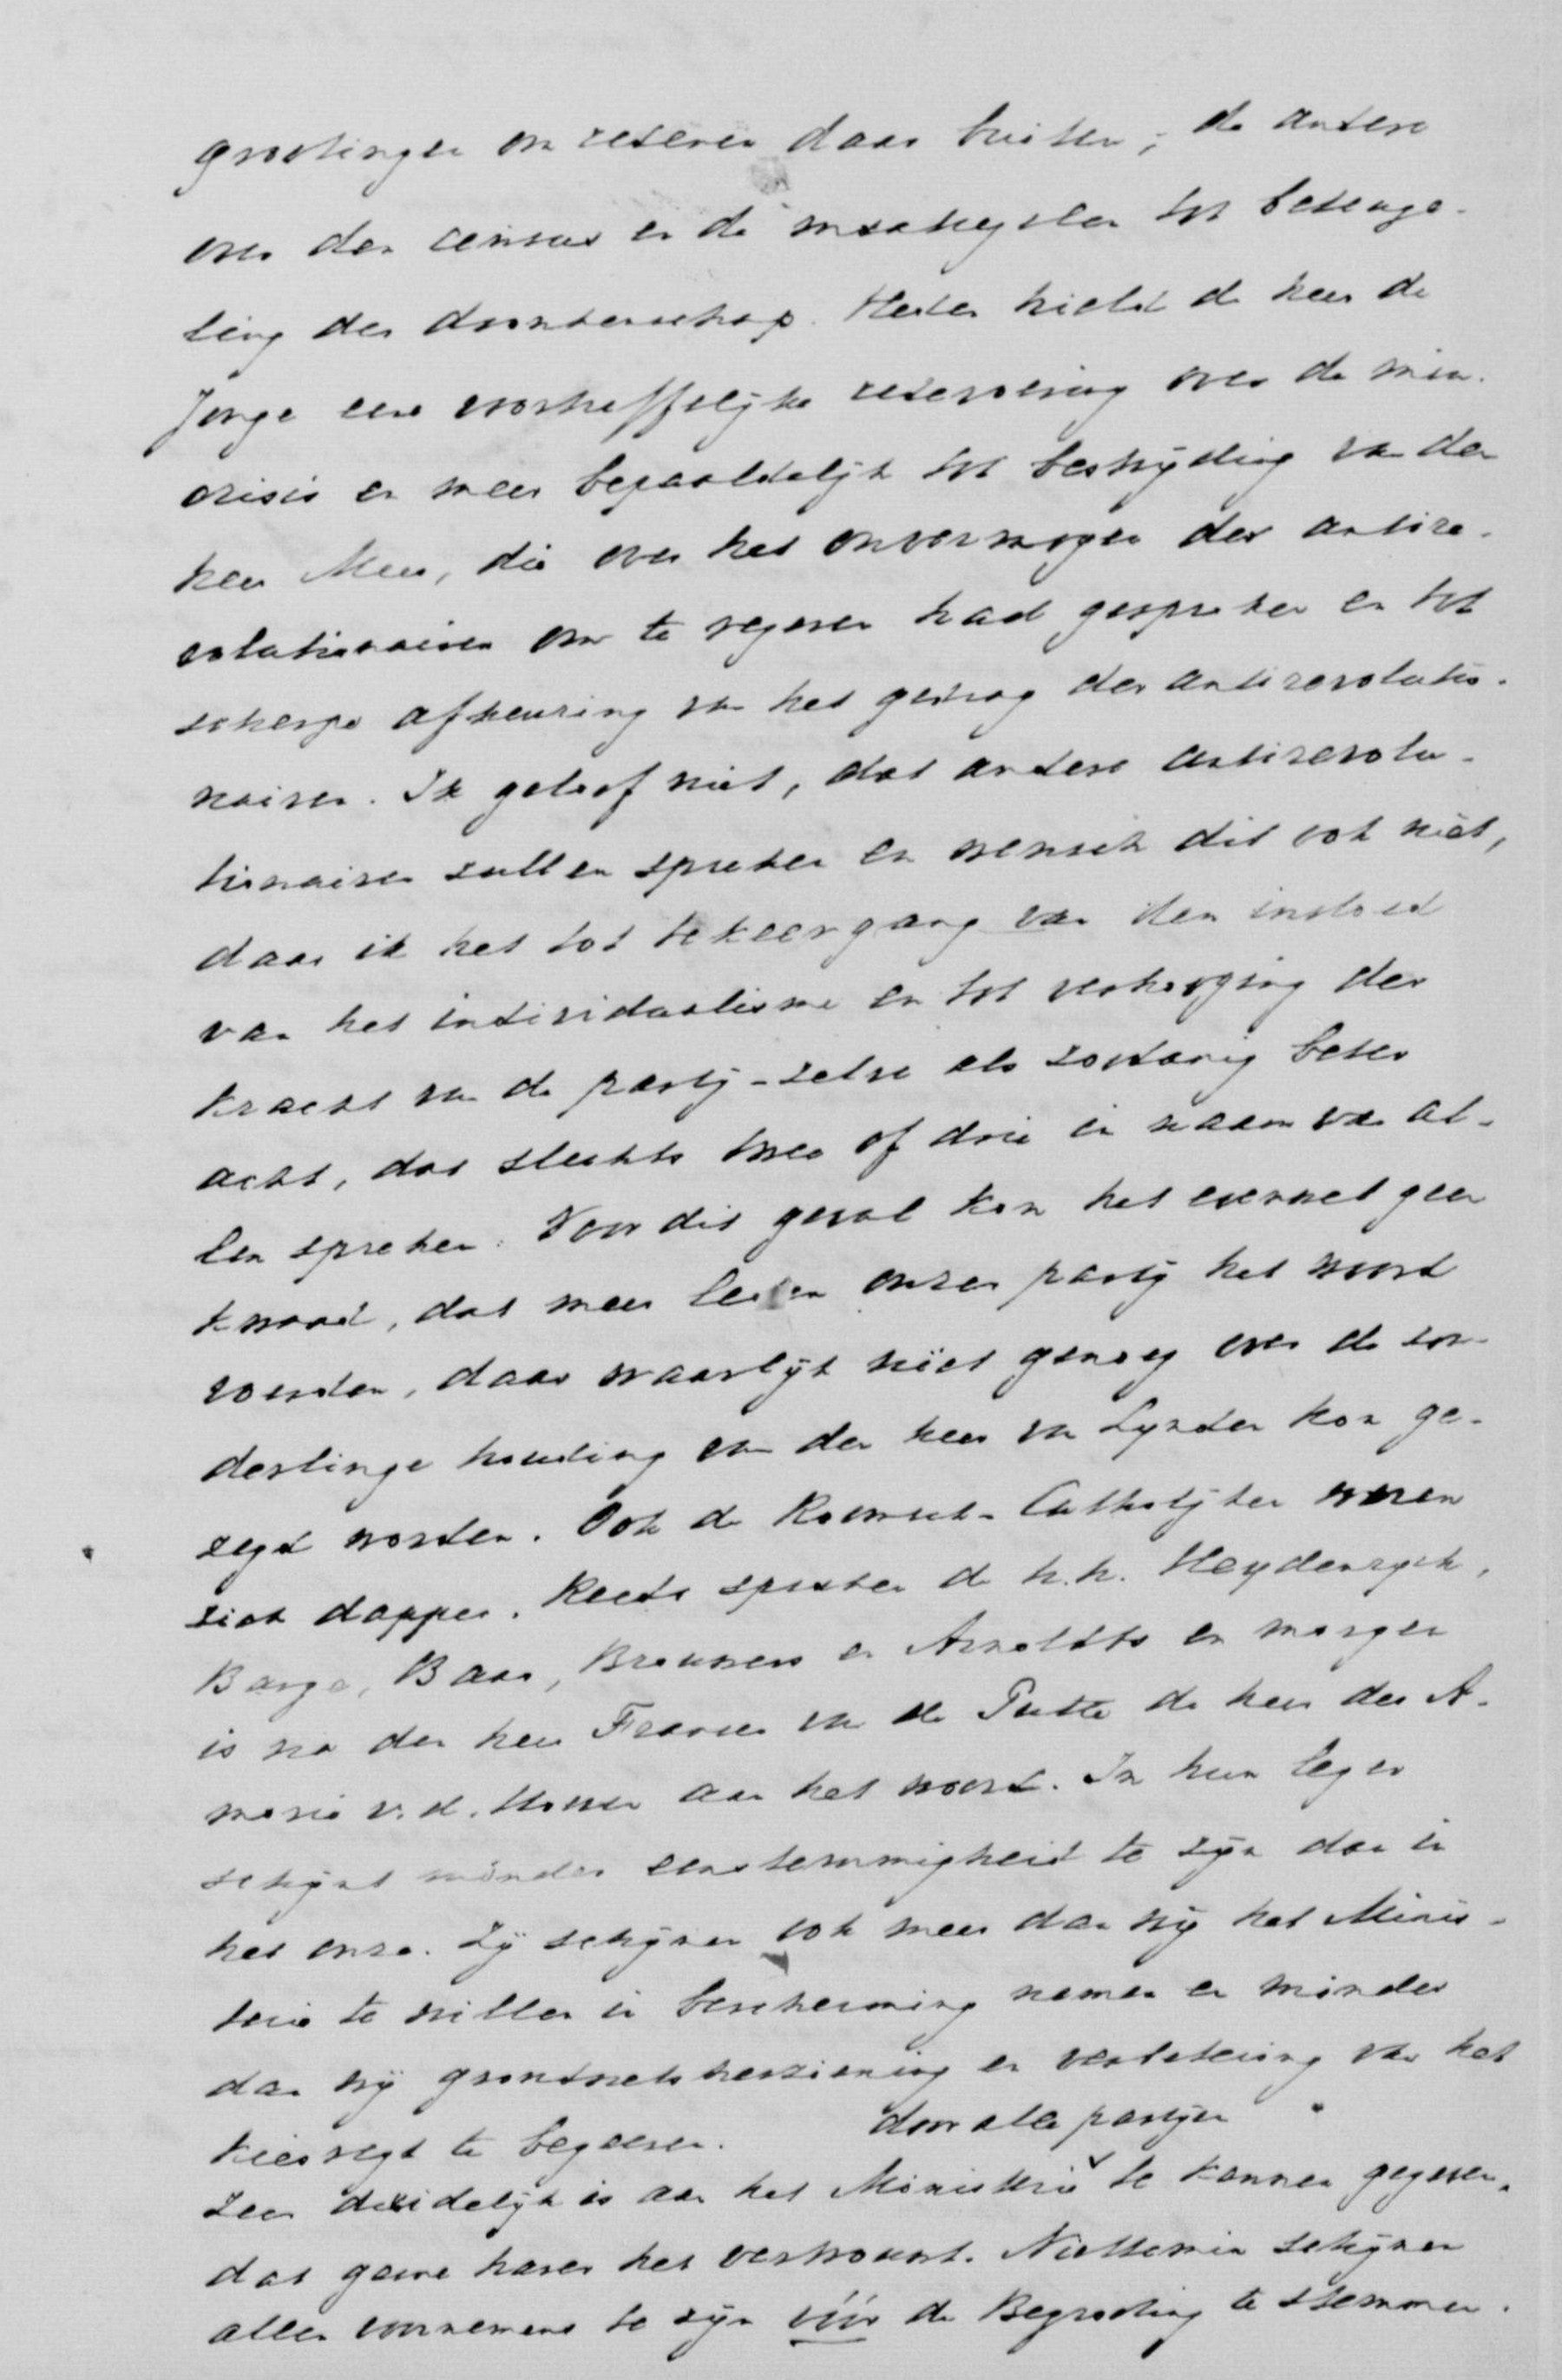 grootingen en redenen daar buiten; de andere
over den census en de maatregelen tot beteuge-
ling der dronkenschap. Heden hield de heer de
Jonge eene voortreffelijke redevoering over de min.
crisis en meer bepaaldelijk tot bestrijding van den
heer Mees, die over het onvermogen der antire-
volutionairen om te regeren had gesproken en tot
scherpe afkeuring van het gedrag der antirevolutio-
nairen. Ik geloof niet, dat andere antirevolu-
tionairen zullen spreken en wensch dit ook niet,
daar ik het tot tekeergang van den invloed
van het individualisme en tot verhooging der
kracht van de partij-zelve als zoodanig beter
acht, dat slechts twee of drie in naam van al-
len spreken. Voor dit geval kon het evenwel geen
kwaad, dat meer leden onzer partij het woord
voerden, daar waarlijk niet genoeg over de zon-
derlinge houding van den heer van Lynden kon ge-
zegd worden. Ook de Roomsch-Catholijken weren
zich dapper. Reeds spraken de h.h. Heydenryck,
Borge, Baar, Brouwers en Arnoldts en morgen
is na den heer Fransen van de Putte de heer des A-
morie v.d. Hoeven aan het woord. In hun leger
schijnt minder eenstemmigheid te zijn dan in
het onze. Zij schijnen ook meer dan wij het Minis-
terie te willen in bescherming nemen en minder
dan wij grondwetsherziening en verbetering van het
kiesregt te begeeren.
door alle partijen
Zeer duidelijk is aan het Ministerie te kennen gegeven,
dat geene haren het vertrouwt. Niettemin schijnen
allen voornemens te zijn vóór de Begrooting te stemmen.